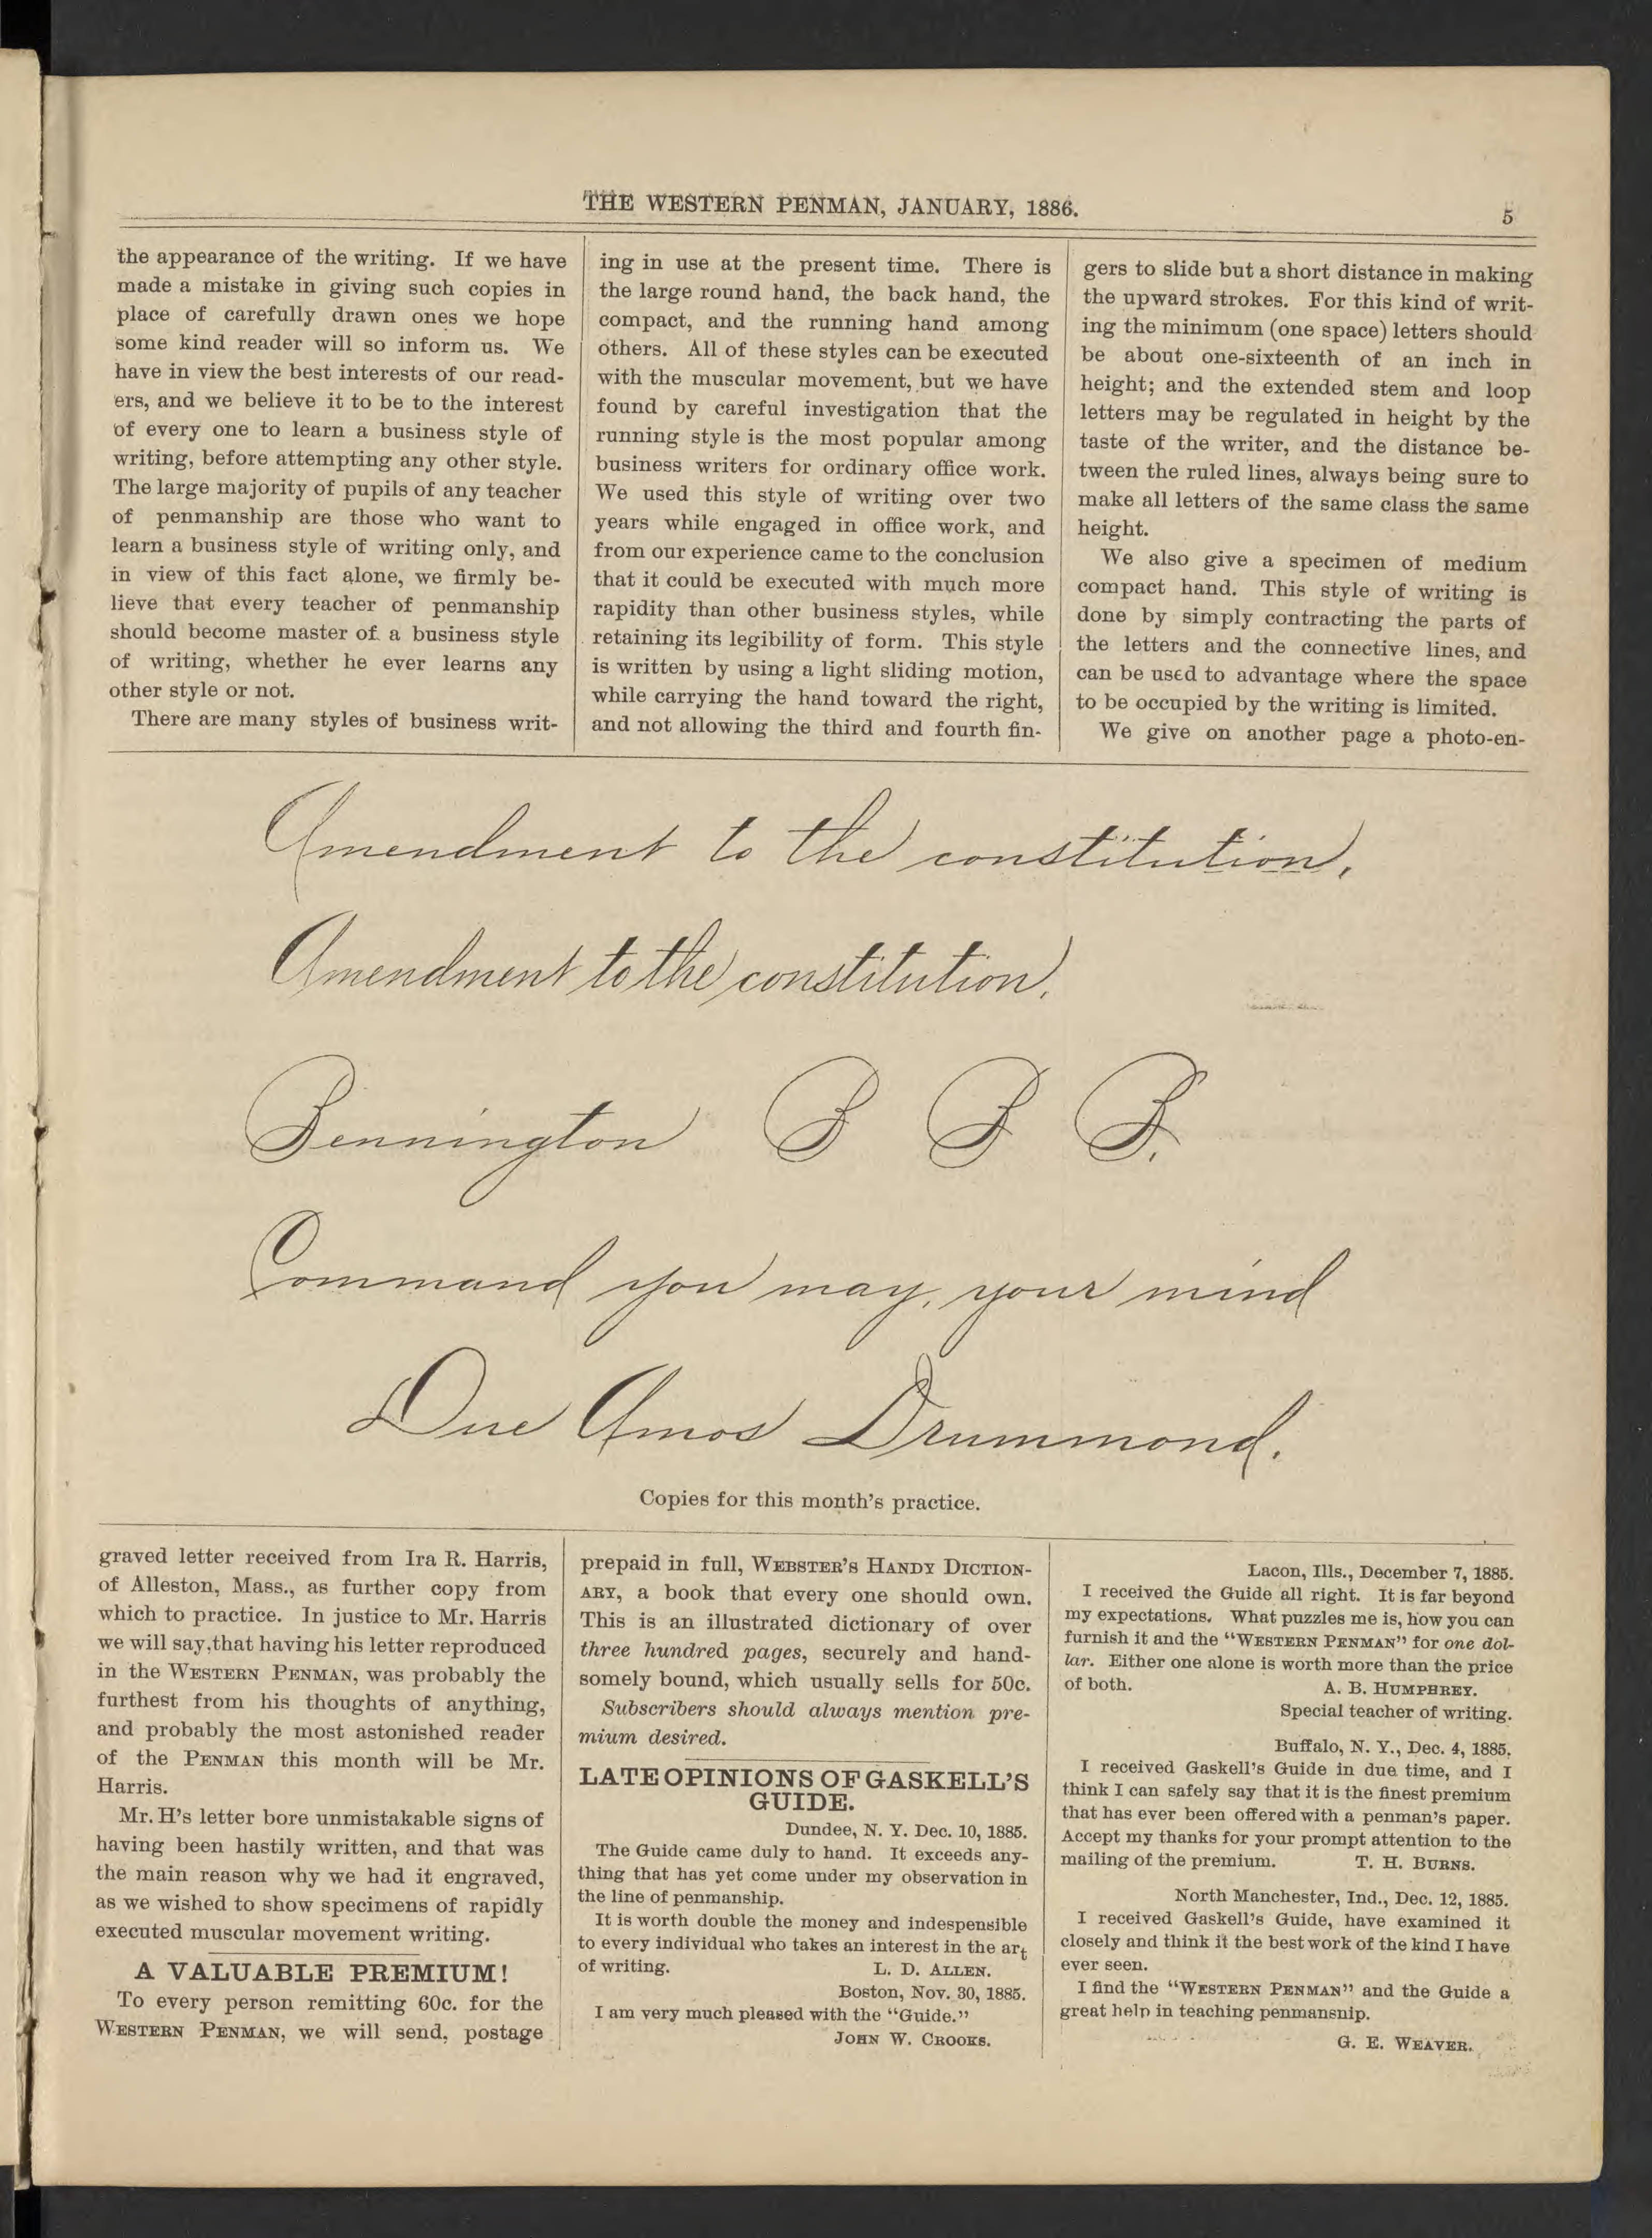 THE WESTERN PENMAN, JANUARY, 1886.
5
the appearance of the writing. If we have
made a mistake in giving such copies in
place of carefully drawn ones we hope
some kind reader will so inform us. We
have in view the best interests of our read-
ers, and we believe it to be to the interest
of every one to learn a business style of
writing, before attempting any other style.
The large majority of pupils of any teacher
of penmanship are those who want to
learn a business style of writing only, and
in view of this fact alone, we firmly be-
lieve that every teacher of penmanship
should become master of a business style
of writing, whether he ever learns any
other style or not.
There are many styles of business writ-
ing in use at the present time. There is
the large round hand, the back hand, the
compact, and the running hand among
others. All of these styles can be executed
with the muscular movement, but we have
found by careful investigation that the
running style is the most popular among
business writers for ordinary office work.
We used this style of writing over two
years while engaged in office work, and
from our experience came to the conclusion
that it could be executed with much more
rapidity than other business styles, while
retaining its legibility of form. This style
is written by using a light sliding motion,
while carrying the hand toward the right,
and not allowing the third and fourth fin-
gers to slide but a short distance in making
the upward strokes. For this kind of writ-
ing the minimum (one space) letters should
be about one-sixteenth of an inch in
height; and the extended stem and loop
letters may be regulated in height by the
taste of the writer, and the distance be-
tween the ruled lines, always being sure to
make all letters of the same class the same
height.
We also give a specimen of medium
compact hand. This style of writing is
done by simply contracting the parts of
the letters and the connective lines, and
can be used to advantage where the space
to be occupied by the writing is limited.
We give on another page a photo-en-
Amendment to the constitution,
Amendment to the constitution.
Bennington B B B.
Command you may, your mind
Due Amos Drummond.
Copies for this month's practice.
graved letter received from Ira R. Harris,
of Alleston, Mass., as further copy from
which to practice. In justice to Mr. Harris
we will say that having his letter reproduced
in the WESTERN PENMAN, was probably the
furthest from his thoughts of anything,
and probably the most astonished reader
of the PENMAN this month will be Mr.
Harris.
Mr. H's letter bore unmistakable signs of
having been hastily written, and that was
the main reason why we had it engraved,
as we wished to show specimens of rapidly
executed muscular movement writing.
A VALUABLE PREMIUM!
To every person remitting 60c. for the
WESTERN PENMAN, we will send, postage
prepaid in full, WEBSTER'S HANDY DICTION-
ARY, a book that every one should own.
This is an illustrated dictionary of over
three hundred pages, securely and hand-
somely bound, which usually sells for 50c.
Subscribers should always mention pre-
mium desired.
LATE OPINIONS OF GASKELL'S
GUIDE.
Dundee, N. Y. Dec. 10, 1885.
The Guide came duly to hand. It exceeds any-
thing that has yet come under my observation in
the line of penmanship.
It is worth double the money and indespensible
to every individual who takes an interest in the art
of writing. L. D. ALLEN.
Boston, Nov. 30, 1885.
I am very much pleased with the "Guide."
JOHN W. CROOKS.
Lacon, Ills., December 7, 1885.
I received the Guide all right. It is far beyond
my expectations. What puzzles me is, how you can
furnish it and the "WESTERN PENMAN" for one dol-
lar. Either one alone is worth more than the price
of both. A. B. HUMPHREY.
Special teacher of writing.
Buffalo, N. Y., Dec. 4, 1885.
I received Gaskell's Guide in due time, and I
think I can safely say that it is the finest premium
that has ever been offered with a penman's paper.
Accept my thanks for your prompt attention to the
mailing of the premium. T. H. BURNS.
North Manchester, Ind., Dec. 12, 1885.
I received Gaskell's Guide, have examined it
closely and think it the best work of the kind I have
ever seen.
I find the "WESTERN PENMAN" and the Guide a
great help in teaching penmansnip.
G. E. WEAVER.